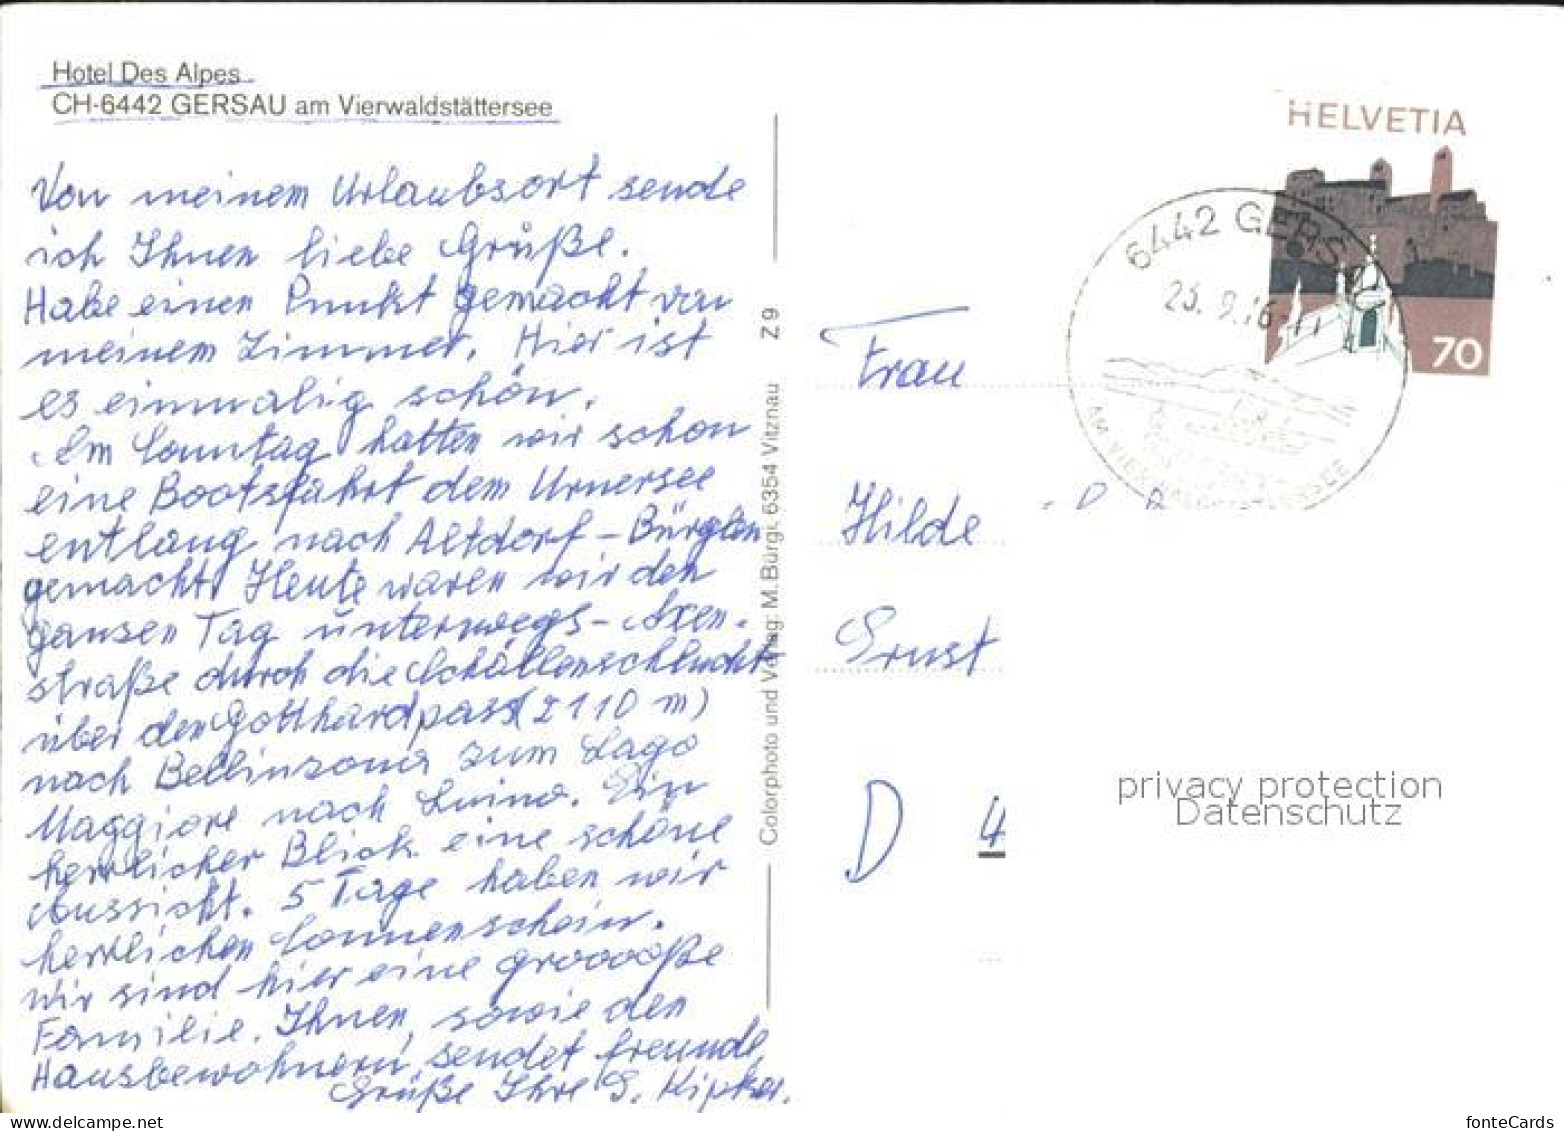 Hotel Des Alpes
CH-6442 GERSAU am Vierwaldstättersee
Von meinem Urlaubsort sende
ich Ihnen liebe Grüße.
Habe einen Punkt gemacht von
meinem Zimmer. Hier ist
es einmalig schön.
Am Sonntag hatten wir schon
eine Bootsfahrt dem Urnersee
entlang nach Altdorf – Bürglen
gemacht. Heute waren wir den
ganzen Tag unterwegs – Axen-
straße durch die Schöllenschlucht
über den Gotthardpass (2110 m)
nach Bellinzona zum Lago
Maggiore nach Luino. Ein
herrlicher Blick eine schöne
Aussicht. 5 Tage haben wir
herrlichen Sonnenschein.
Wir sind hier eine grooooße
Familie. Ihnen, sowie den
Hausbewohnern, sendet freundl.
Grüße Ihre G. Kipker.
Colorphoto und Verlag: M. Bürgi, 6354 Vitznau Z 9
HELVETIA
70
6442 GERS
AM VIERWALDSTÄTTERSEE
Frau
Hilde
Ernst
D 4
privacy protection
Datenschutz
www.delcampe.net
fonteCards